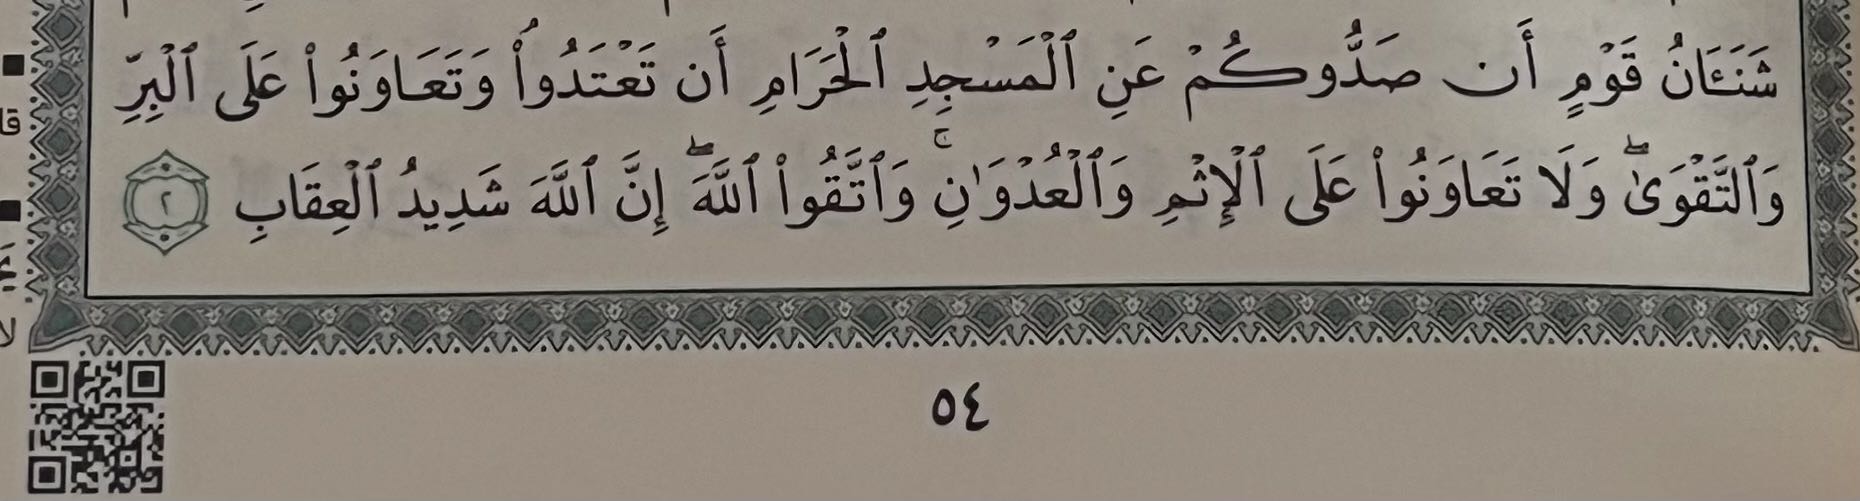 شَنَـَٔانُ قَوْمٍ أَن صَدُّوكُمْ عَنِ ٱلْمَسْجِدِ ٱلْحَرَامِ أَن تَعْتَدُوا۟ وَتَعَاوَنُوا۟ عَلَى ٱلْبِرِّ
وَٱلتَّقْوَىٰۖ وَلَا تَعَاوَنُوا۟ عَلَى ٱلْإِثْمِ وَٱلْعُدْوَٰنِۚ وَٱتَّقُوا۟ ٱللَّهَۖ إِنَّ ٱللَّهَ شَدِيدُ ٱلْعِقَابِ ٢
٥٤